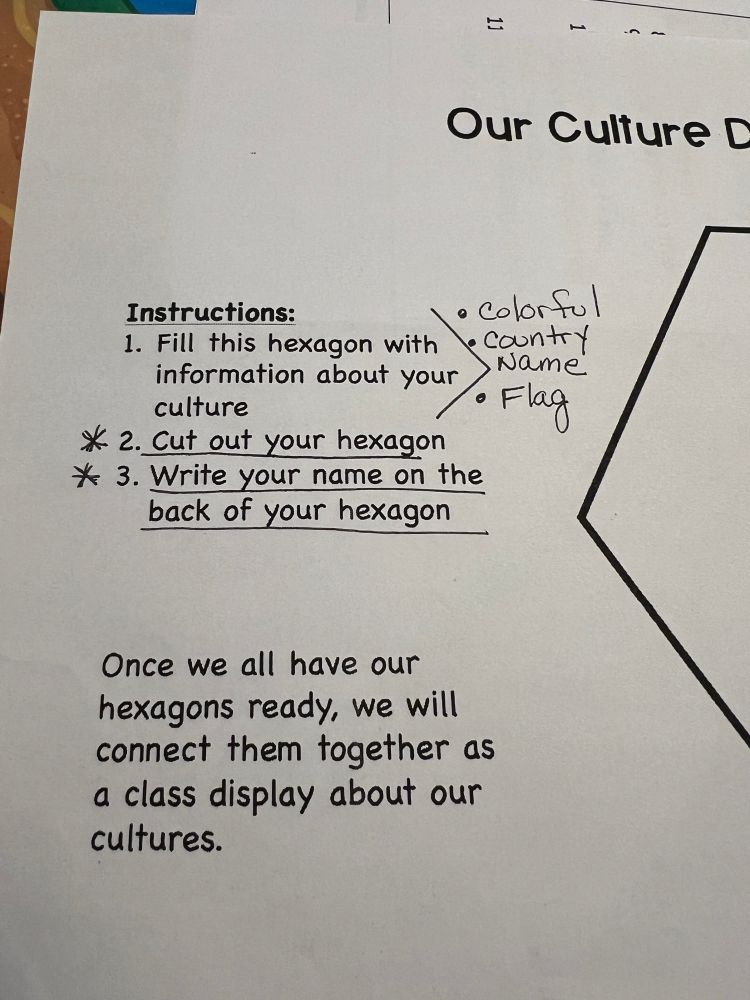 Our Culture D
Instructions:
1. Fill this hexagon with
information about your
culture
• Colorful
• Country
Name
• Flag
2. Cut out your hexagon
3. Write your name on the
back of your hexagon
Once we all have our
hexagons ready, we will
connect them together as
a class display about our
cultures.